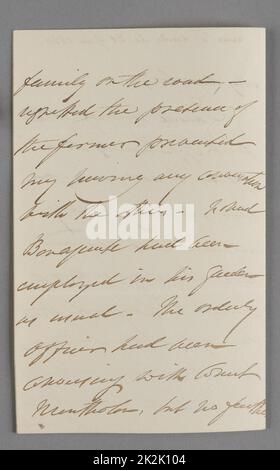 family on the road, –
regretted the presence of
the former prevented
my having any conversation
with the other –
Bonaparte had been
employed in his Garden
as usual – The orderly
officer had been
conversing with Count
Montholon, but no further
alamy
Image ID: 2K2K104
www.alamy.com